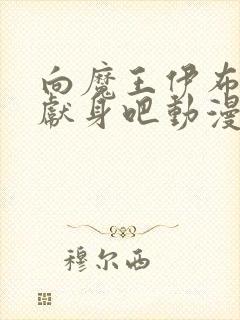 向魔王伊布
獻身吧動漫
穆尔西